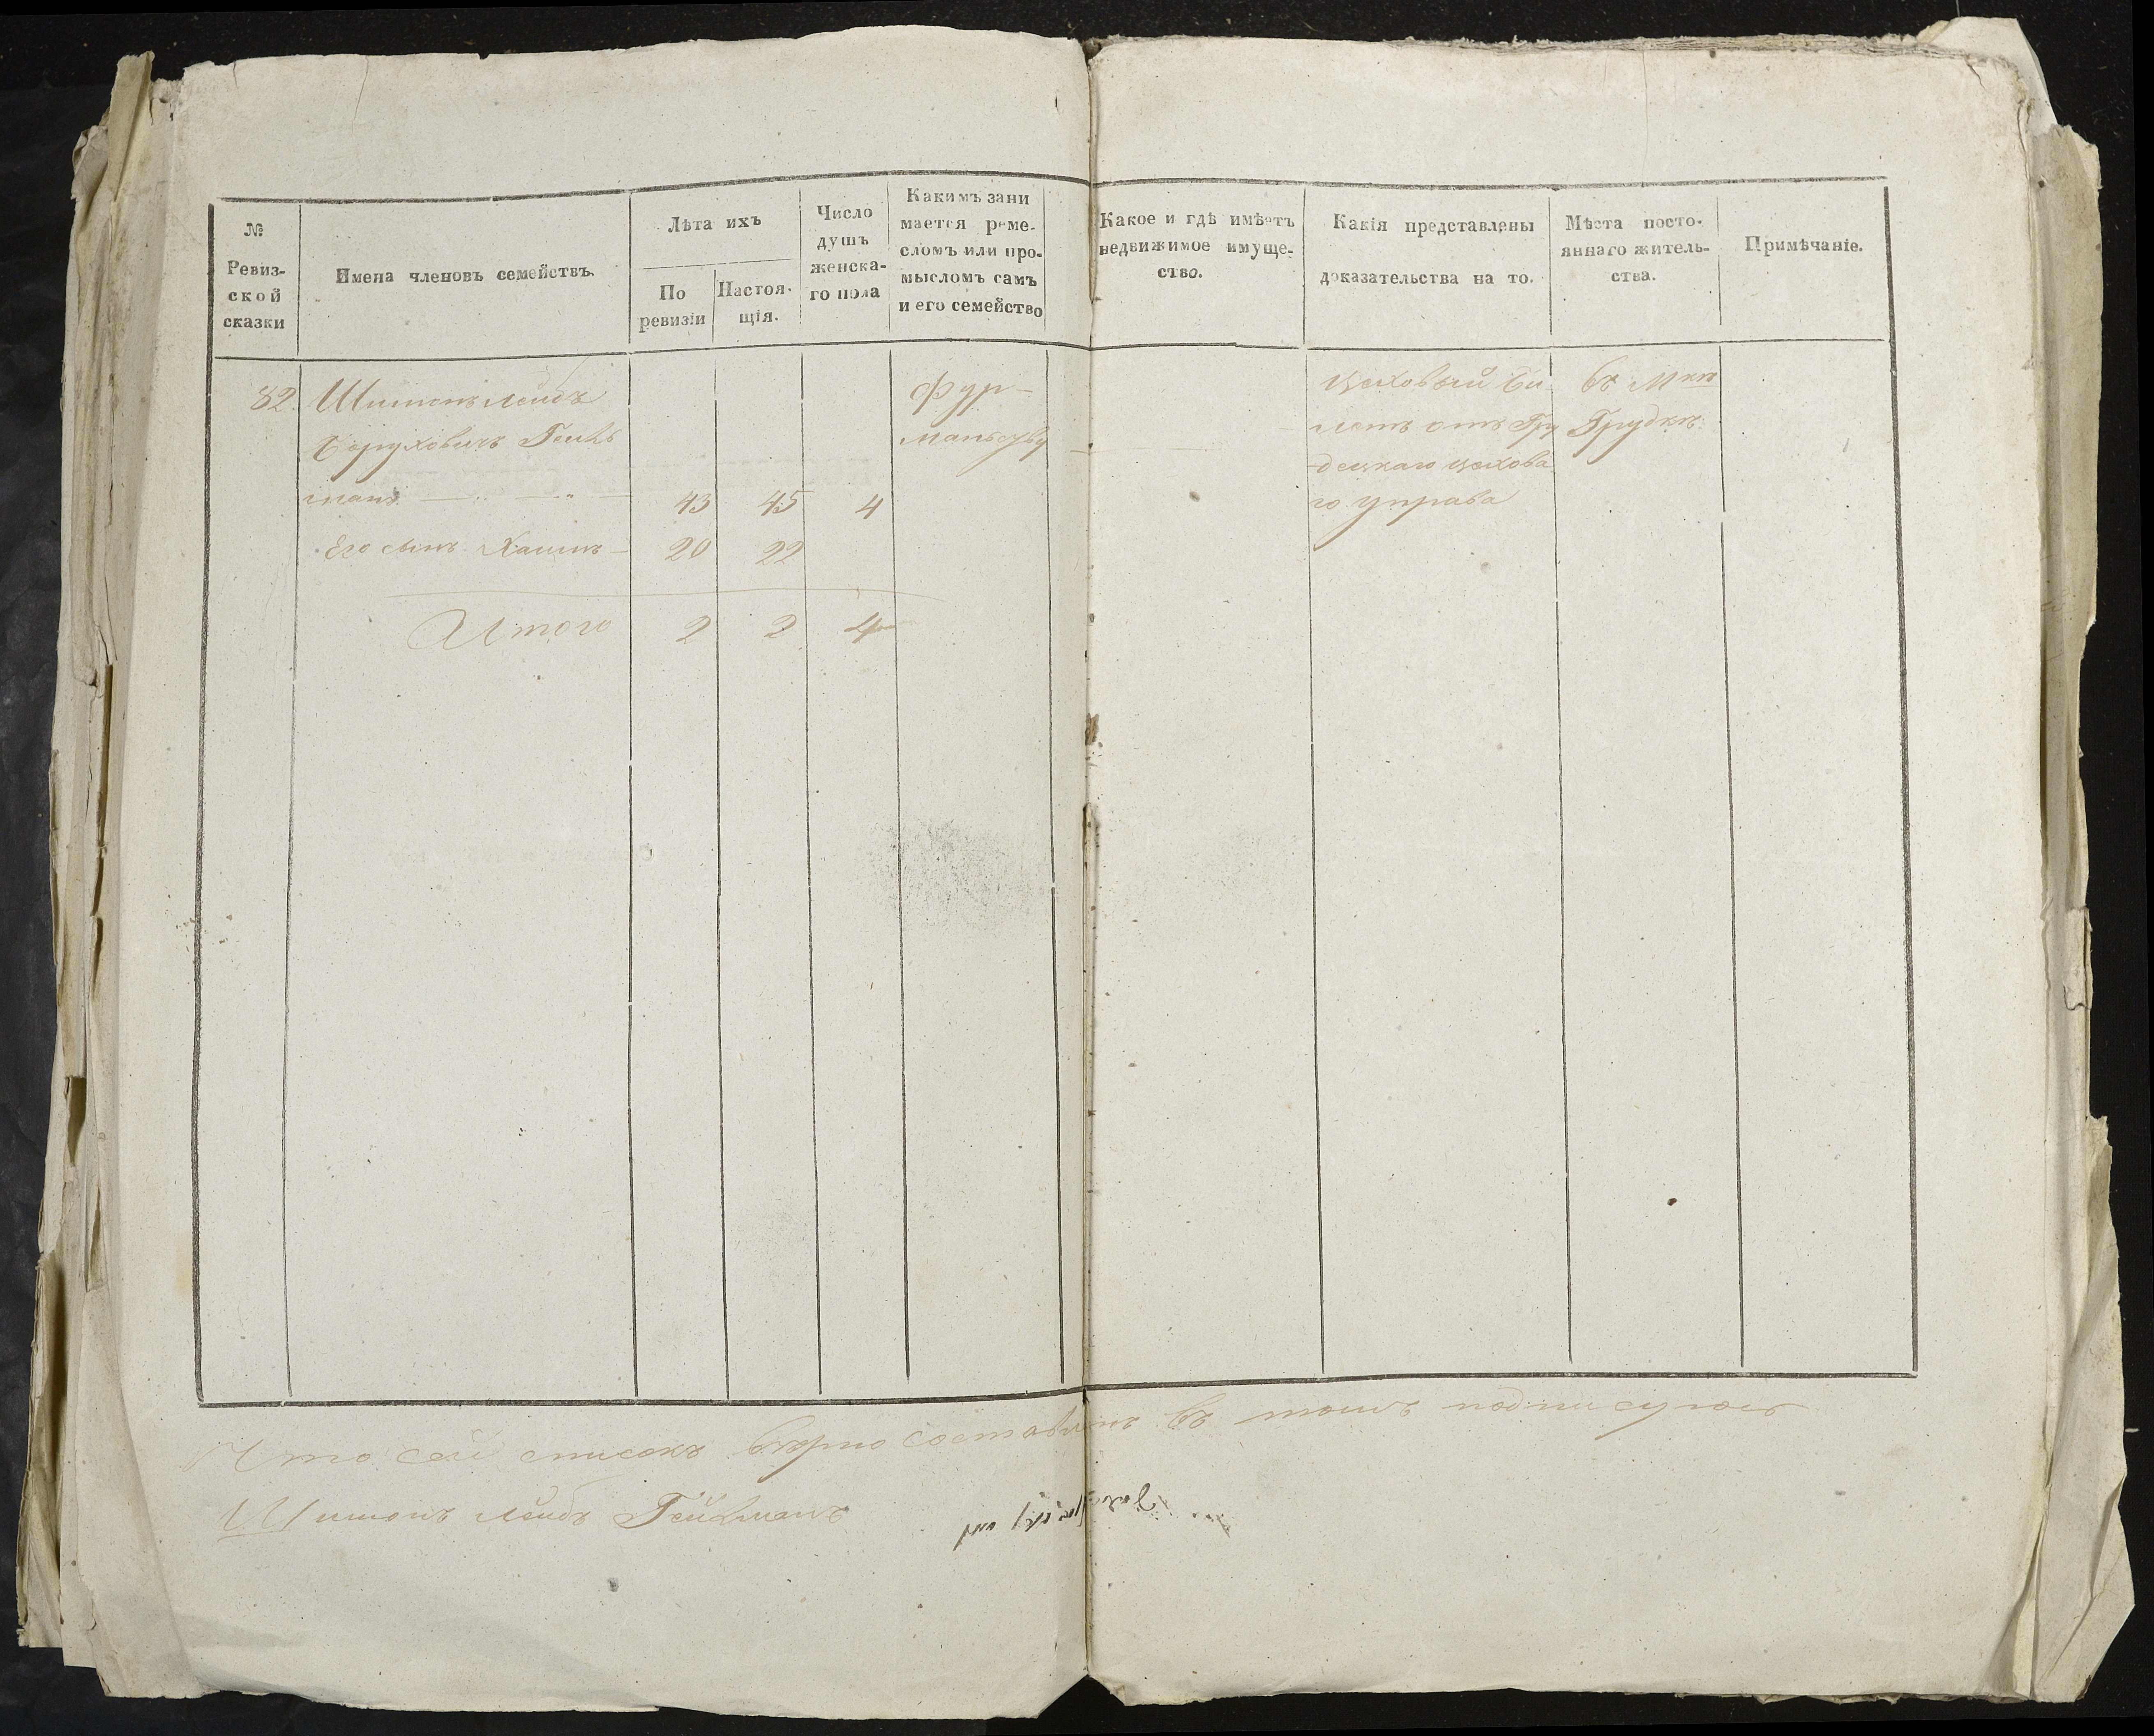 №
Ревиз-
ской
сказки
Имена членовъ семействъ.
Лѣта ихъ
По
ревизіи
Настоя-
щія.
Число
душъ
женска-
го пола
Какимъ зани
мается реме-
сломъ или про-
мысломъ самъ
и его семейство
Какое и гдѣ имѣетъ
недвижимое имуще-
ство.
Какія представлены
доказательства на то.
Мѣста посто-
яннаго житель-
ства.
Примѣчаніе.
82. Шимонъ Лейбъ
фур-
Цеховый би
въ Мкѣ
Беруховичъ
летъ отъ Гру
Грудкѣ
манъ
-децкаго цехова
43 45 4
го управа
Его сынъ Хаимъ 20 22
Итого 2 2 4
Что сей списокъ вѣрно составленъ въ томъ подписуюсь
Шимонъ Лейбъ